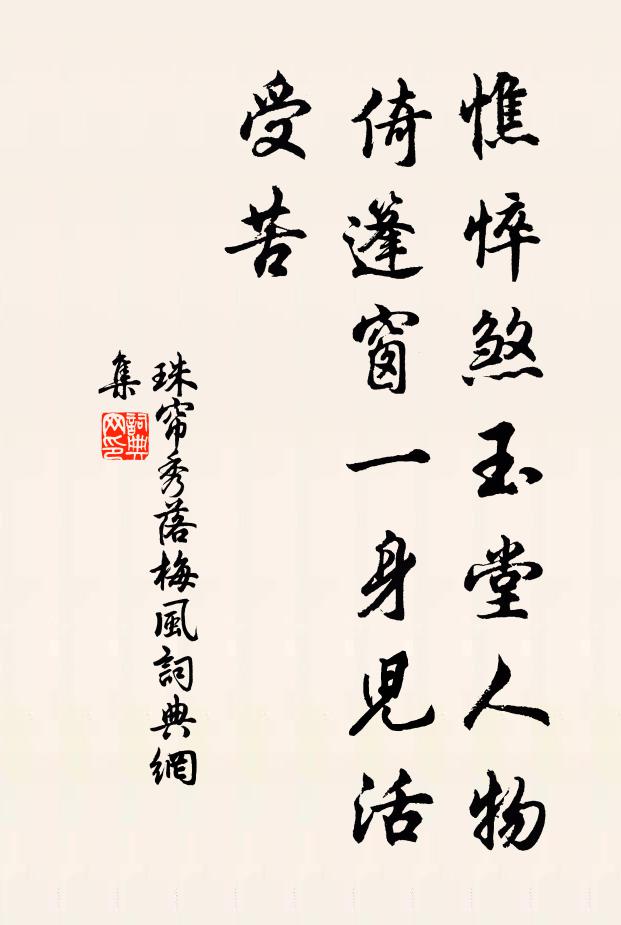 憔悴煞玉堂人物
倚蓬窗一身児活
受苦
珠帘秀落梅風詞典網
集
詞典
网印